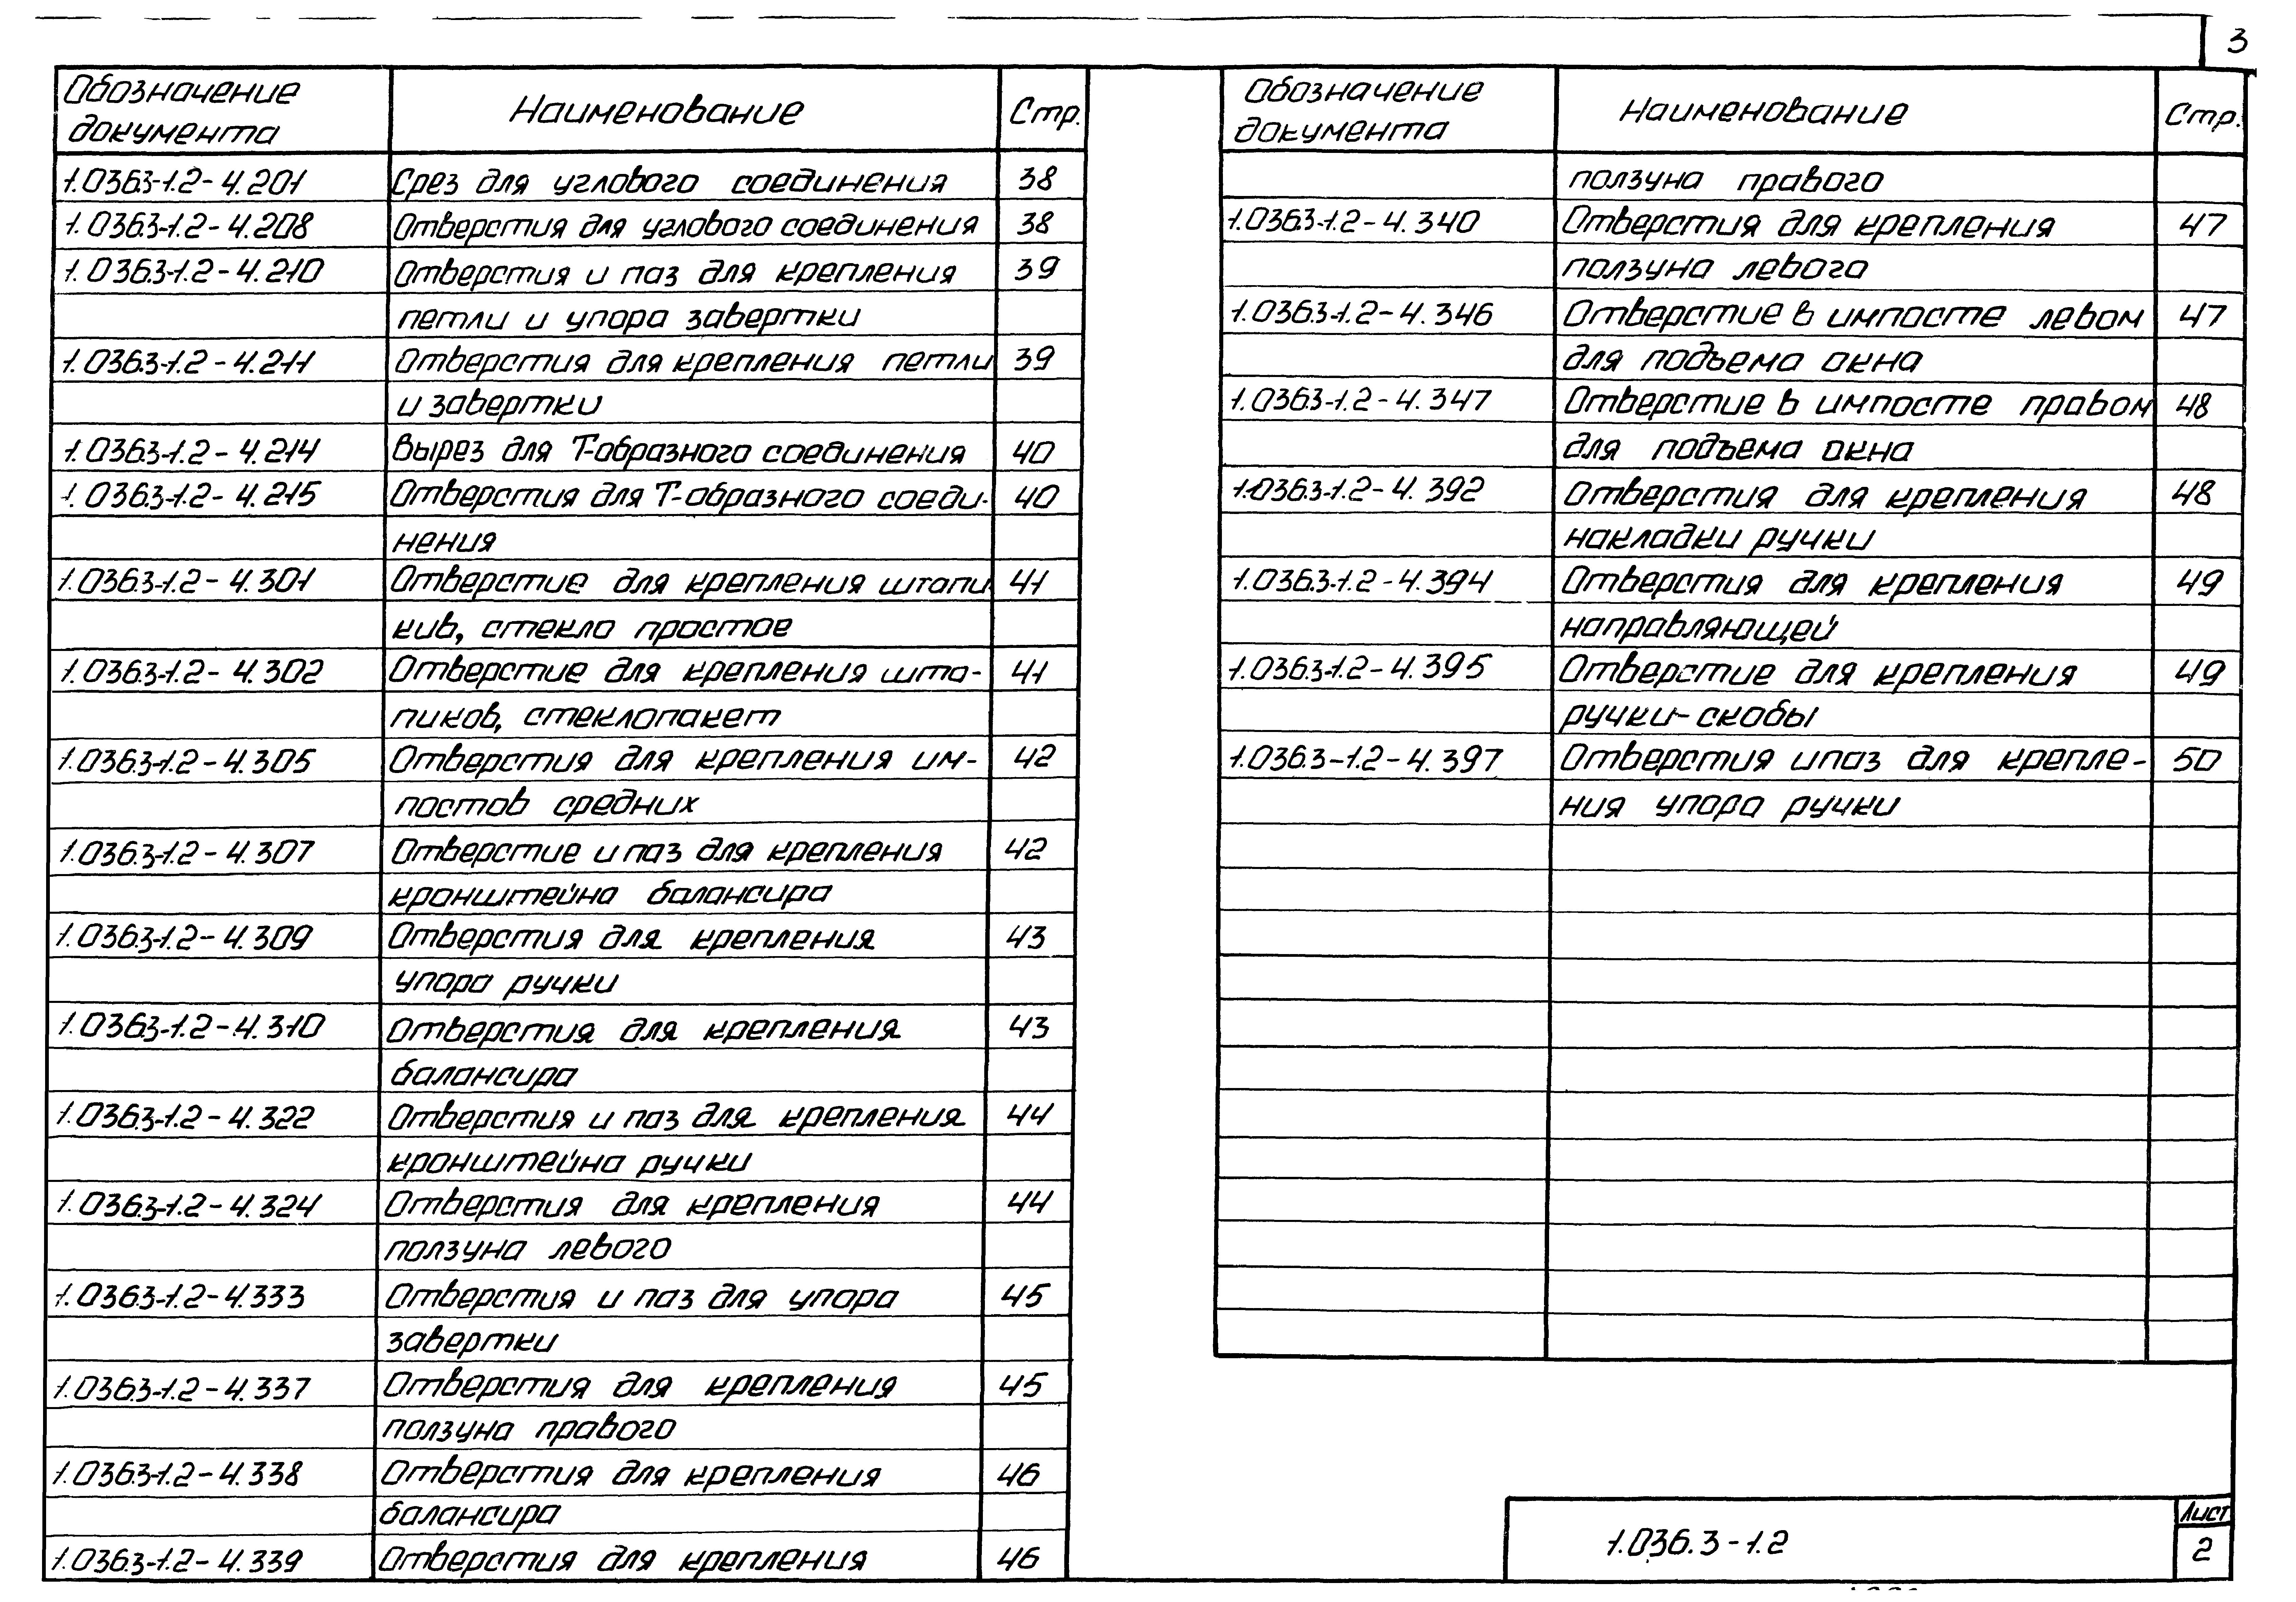 3
Обозначение документа Наименование Стр.
1.036.3-1.2-4.201 Срез для углового соединения 38
1.036.3-1.2-4.208 Отверстия для углового соединения 38
1.036.3-1.2-4.210 Отверстия и паз для крепления 39
петли и упора завертки
1.036.3-1.2-4.211 Отверстия для крепления петли 39
и завертки
1.036.3-1.2-4.214 Вырез для Т-образного соединения 40
1.036.3-1.2-4.215 Отверстия для Т-образного соеди- 40
нения
1.036.3-1.2-4.301 Отверстие для крепления штапи 41
ков, стекло простое
1.036.3-1.2-4.302 Отверстие для крепления шта- 41
пиков, стеклопакет
1.036.3-1.2-4.305 Отверстия для крепления им- 42
постов средних
1.036.3-1.2-4.307 Отверстие и паз для крепления 42
кронштейна балансира
1.036.3-1.2-4.309 Отверстия для крепления 43
упора ручки
1.036.3-1.2-4.310 Отверстия для крепления 43
балансира
1.036.3-1.2-4.322 Отверстия и паз для крепления 44
кронштейна ручки
1.036.3-1.2-4.324 Отверстия для крепления 44
ползуна левого
1.036.3-1.2-4.333 Отверстия и паз для упора 45
завертки
1.036.3-1.2-4.337 Отверстия для крепления 45
ползуна правого
1.036.3-1.2-4.338 Отверстия для крепления 46
балансира
1.036.3-1.2-4.339 Отверстия для крепления 46
Обозначение документа Наименование Стр.
ползуна правого
1.036.3-1.2-4.340 Отверстия для крепления 47
ползуна левого
1.036.3-1.2-4.346 Отверстие в импосте левом 47
для подъема окна
1.036.3-1.2-4.347 Отверстие в импосте правом 48
для подъема окна
1.036.3-1.2-4.392 Отверстия для крепления 48
накладки ручки
1.036.3-1.2-4.394 Отверстия для крепления 49
направляющей
1.036.3-1.2-4.395 Отверстие для крепления 49
ручки-скобы
1.036.3-1.2-4.397 Отверстия и паз для крепле- 50
ния упора ручки
1.036.3-1.2
Лист
2